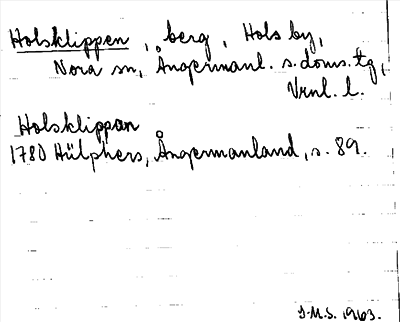 Holsklippen, berg, Hols by,
Nora sn, Ångermanl. s. doms. tg,
Vrnl. l.
Holsklippan
1780 Hülphers, Ångermanland, s. 89.
I.M.S. 1963.